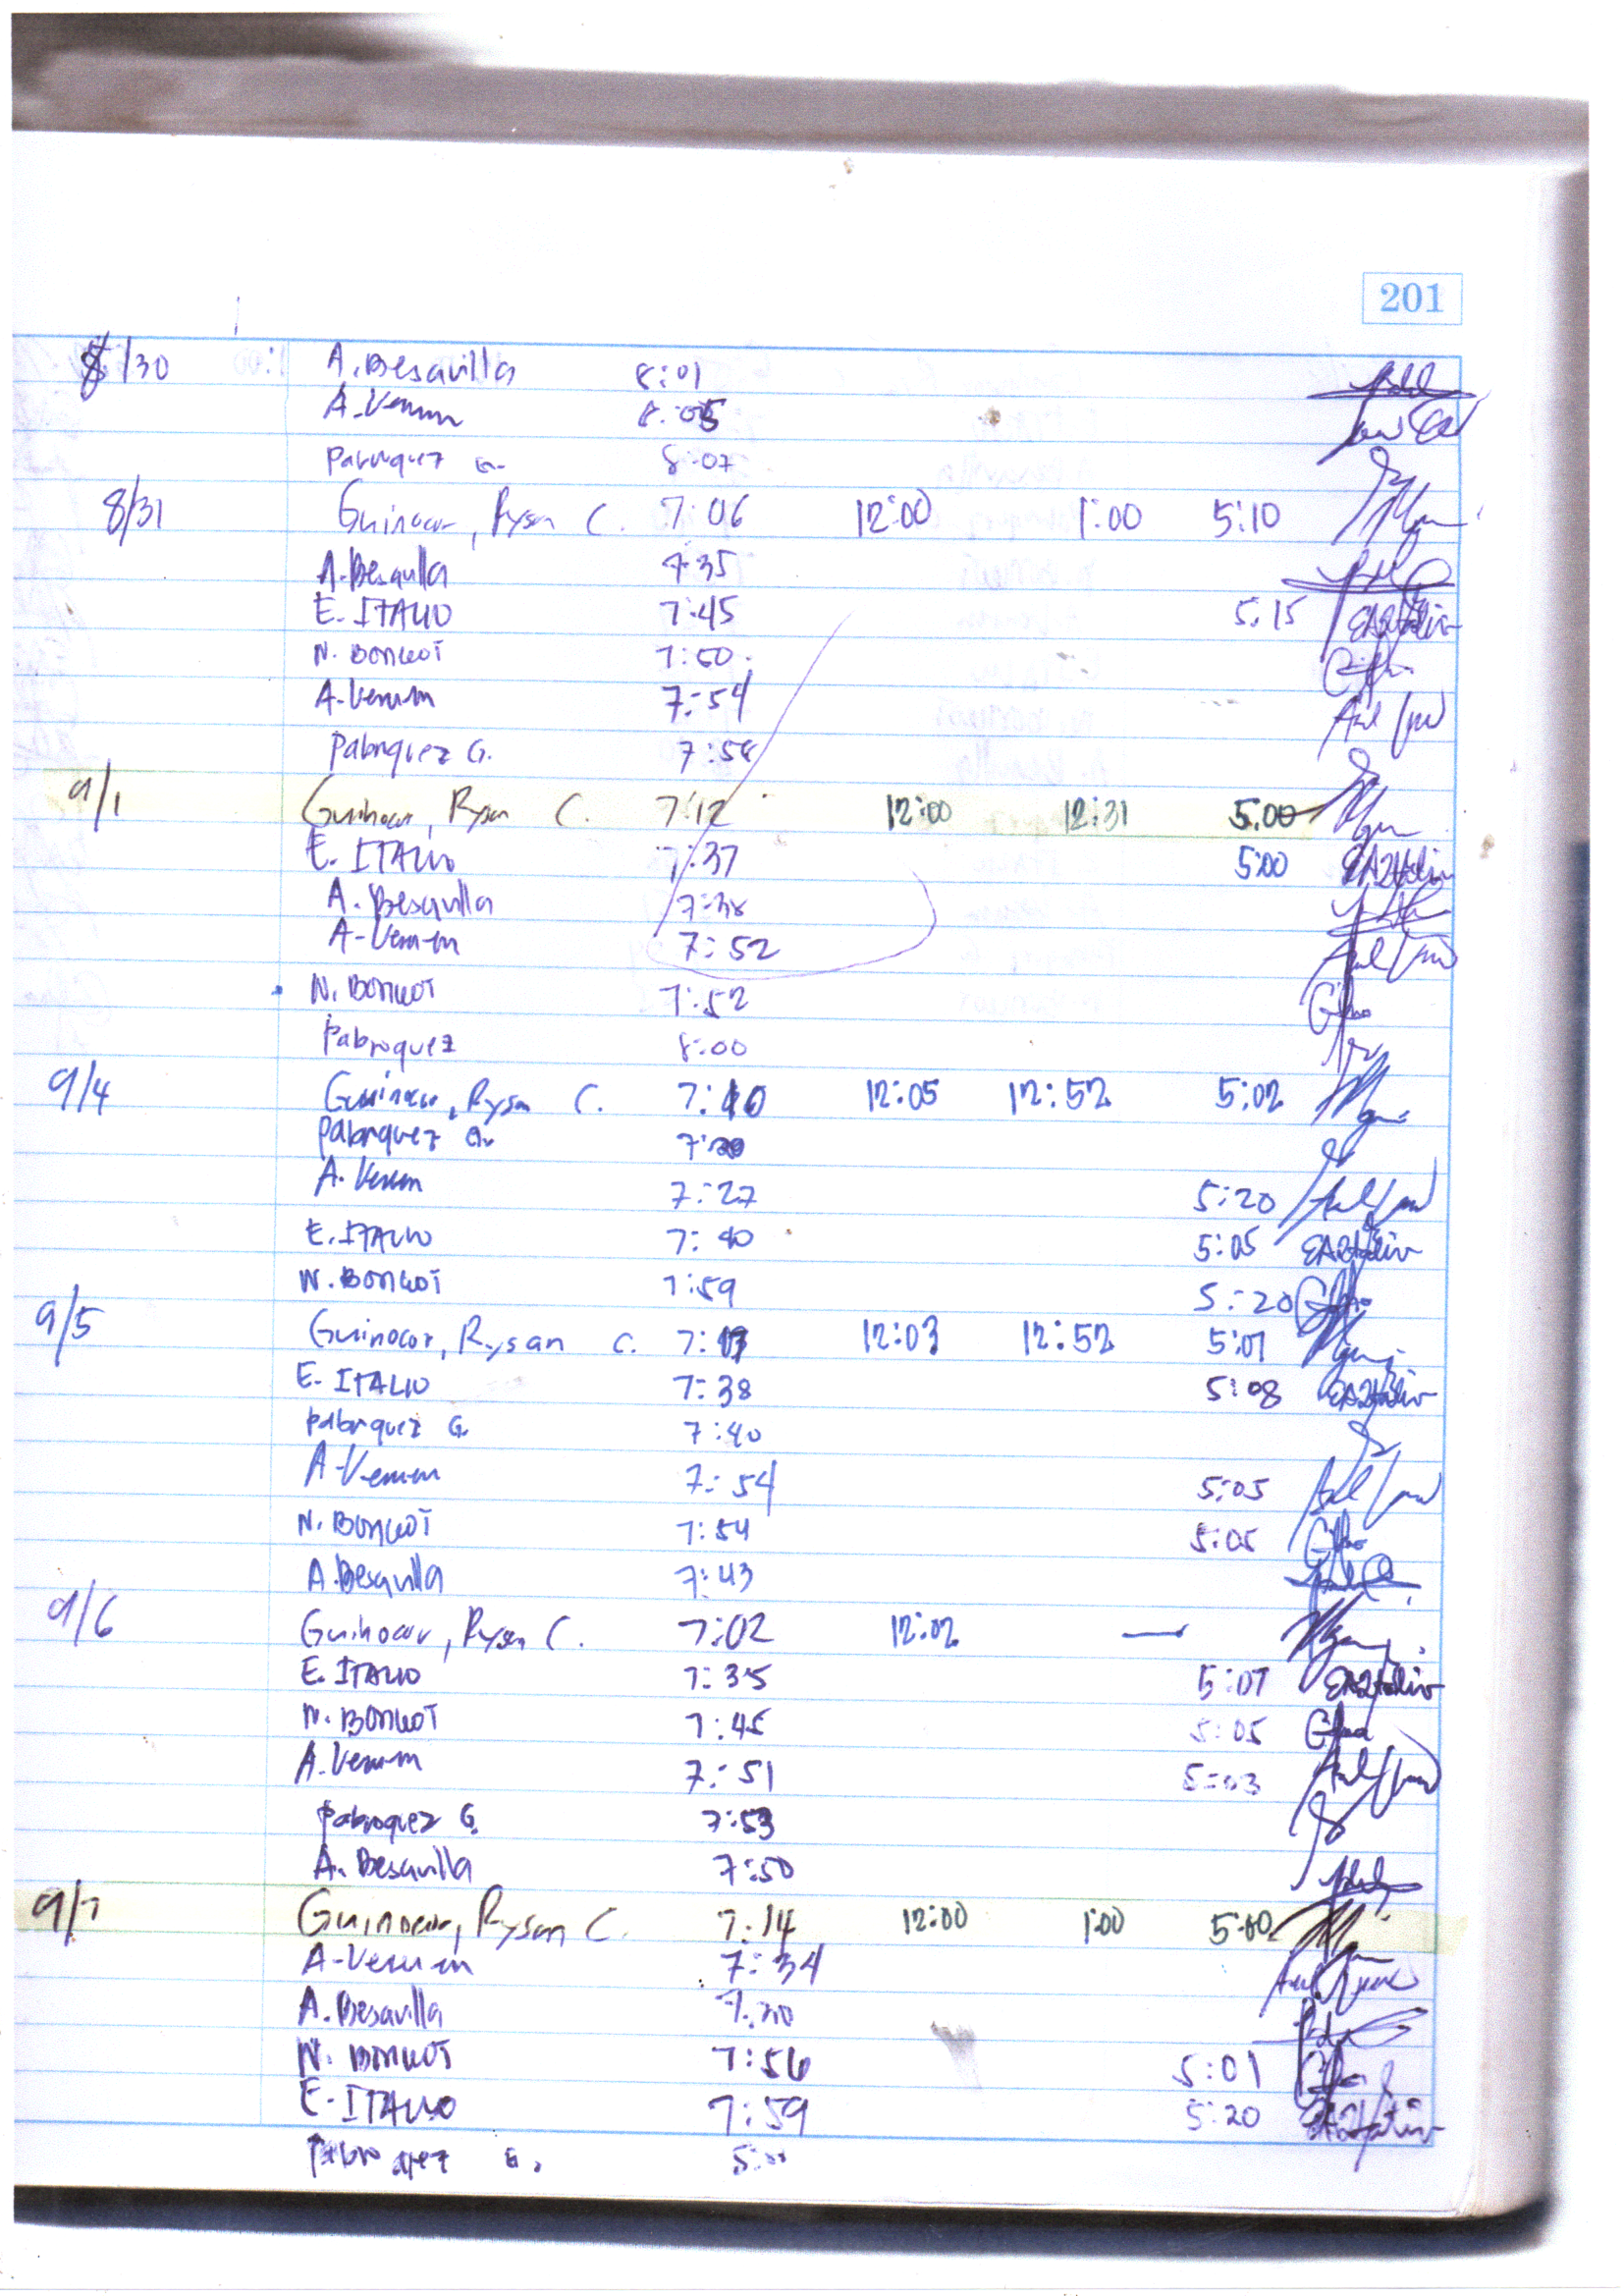 201
8/30 A. Besavilla 8:01
A. Verum 8:05
Pabriquez G. 8:07
8/31 Guinocor, Rysan C. 7:06 12:00 1:00 5:10
A. Besavilla 7:35
E. ITALIO 7:45 5:15
N. BONGOT 7:50
A. Verum 7:54
Pabriquez G. 7:58
9/1 Guinocor, Rysan C. 7:12 12:00 12:31 5:00
E. ITALIO 7:37 5:00
A. Besavilla 7:38
A. Verum 7:52
N. BONGOT 7:52
Pabroquez 8:00
9/4 Guinocor, Rysan C. 7:10 12:05 12:52 5:02
Pabriquez G.
A. Verum 7:27 5:20
E. ITALIO 7:40 5:05
N. BONGOT 7:59 5:20
9/5 Guinocor, Rysan C. 12:03 12:52 5:07
E. ITALIO 7:38 5:08
Pabriquez G. 7:40
A. Verum 7:54 5:05
N. BONGOT 7:54 5:05
A. Besavilla 7:43
9/6 Guinocor, Rysan C. 7:02 12:02 —
E. ITALIO 7:35 5:07
N. BONGOT 7:45 5:05
A. Verum 7:51 5:03
Pabroquez G. 7:53
A. Besavilla 7:50
9/7 Guinocor, Rysan C. 7:14 12:00 1:00 5:00
A. Verum 7:34
A. Besavilla
N. BONGOT 7:56 5:01
E. ITALIO 7:59 5:20
Pabroquez G.